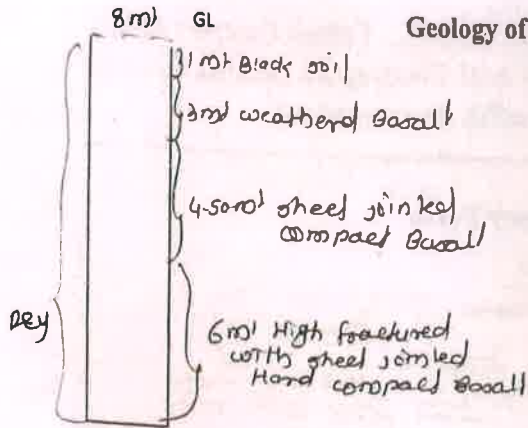 8 mt GL Geology of
1 mt Black Soil
3mt weatherd Basalt
4.50mt sheet jointed
compact Basalt
Dry
6mt High fractured
with sheet jointed
Hard compact Basalt